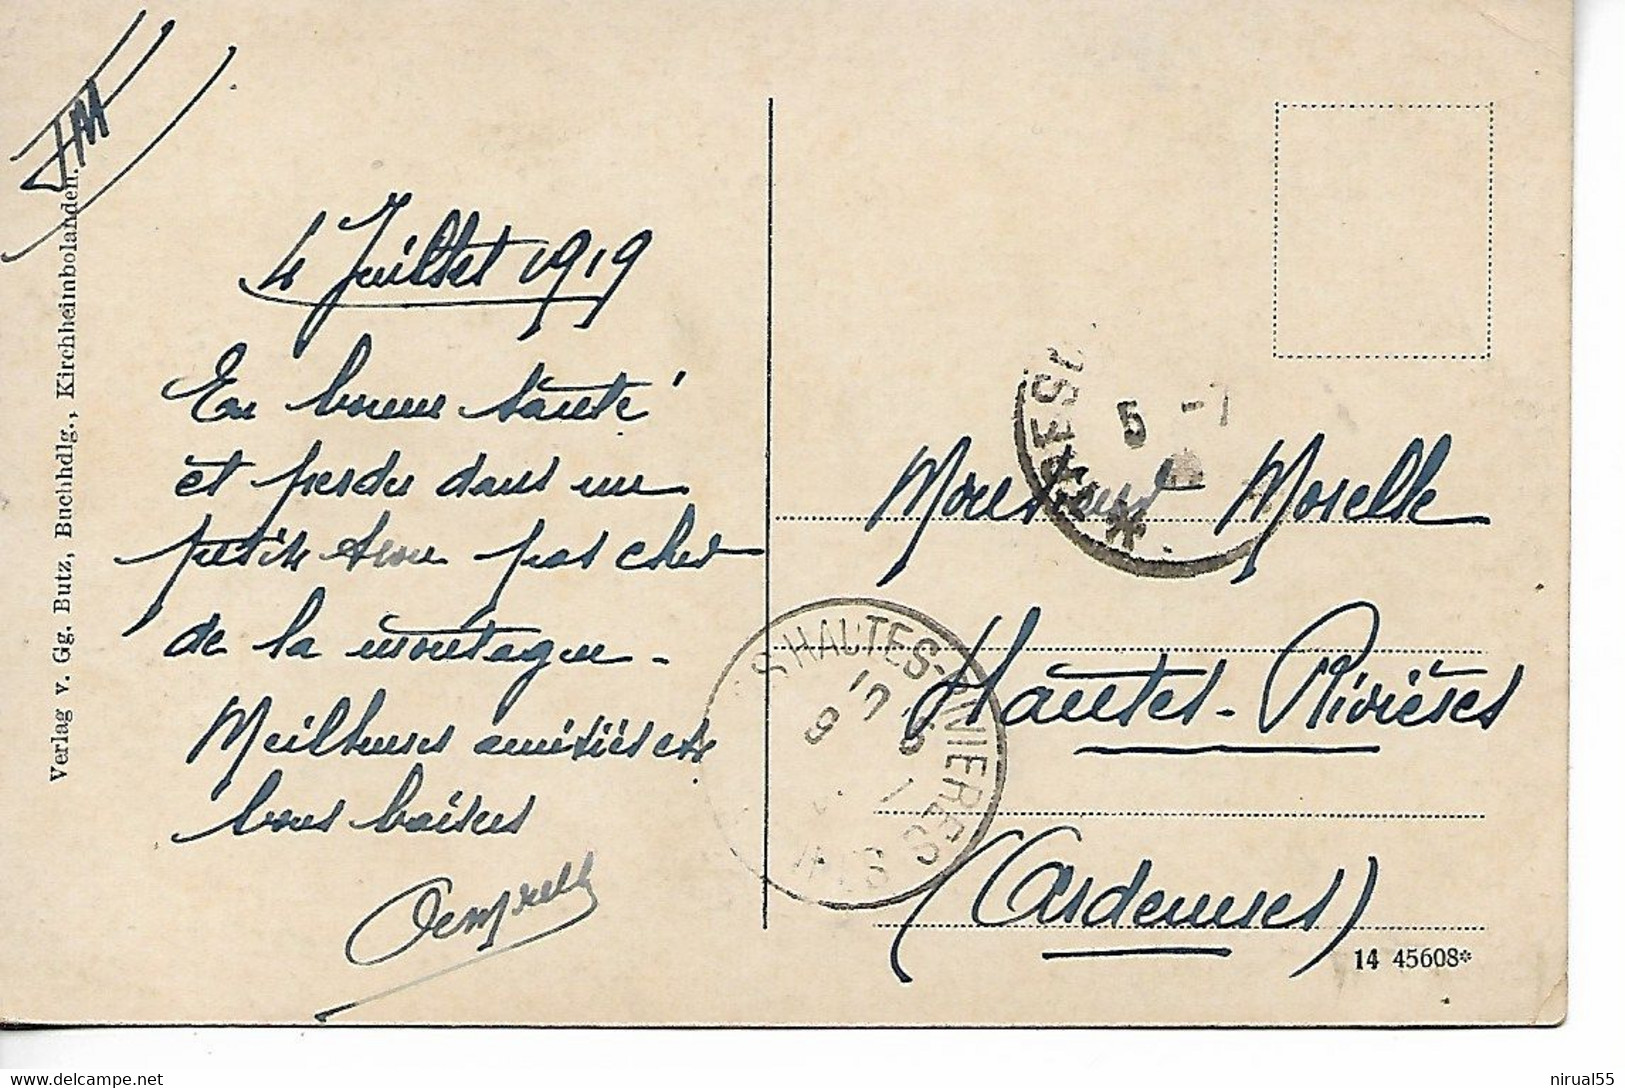 FM
4 Juillet 1919
En bonne santé
et perdu dans un
petit trou pas cher
de la montagne -
Meilleures amitiés et
bons baisers
Verlag v. Gg. Butz, Buchhdlg., Kirchheimbolanden.
5 -7
Monsieur Moselle
Hautes-Rivières
(Ardennes)
14 45608*
nirual55